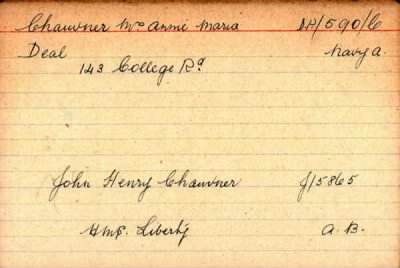 Chawner Mrs Annie Maria DP/590/C
Deal Navy a.
143 College Rd
John Henry Chawner J/5865
H.M.S. Liberty A.B.